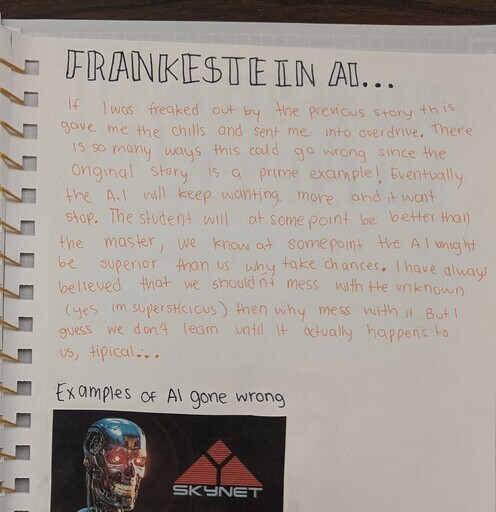 FRANKESTEIN AI...
If I was freaked out by the previous story this
gave me the chills and sent me into overdrive. There
is so many ways this could go wrong since the
original story is a prime example! Eventually
the A.I will keep wanting more and it wont
stop. The student will at some point be better than
the master, we know at somepoint the AI might
be superior than us why take chances. I have always
believed that we shouldnt mess with the unknown
(yes im supersticious) then why mess with it. But I
guess we don't learn until it actually happens to
us, tipical...
Examples of AI gone wrong
SKYNET